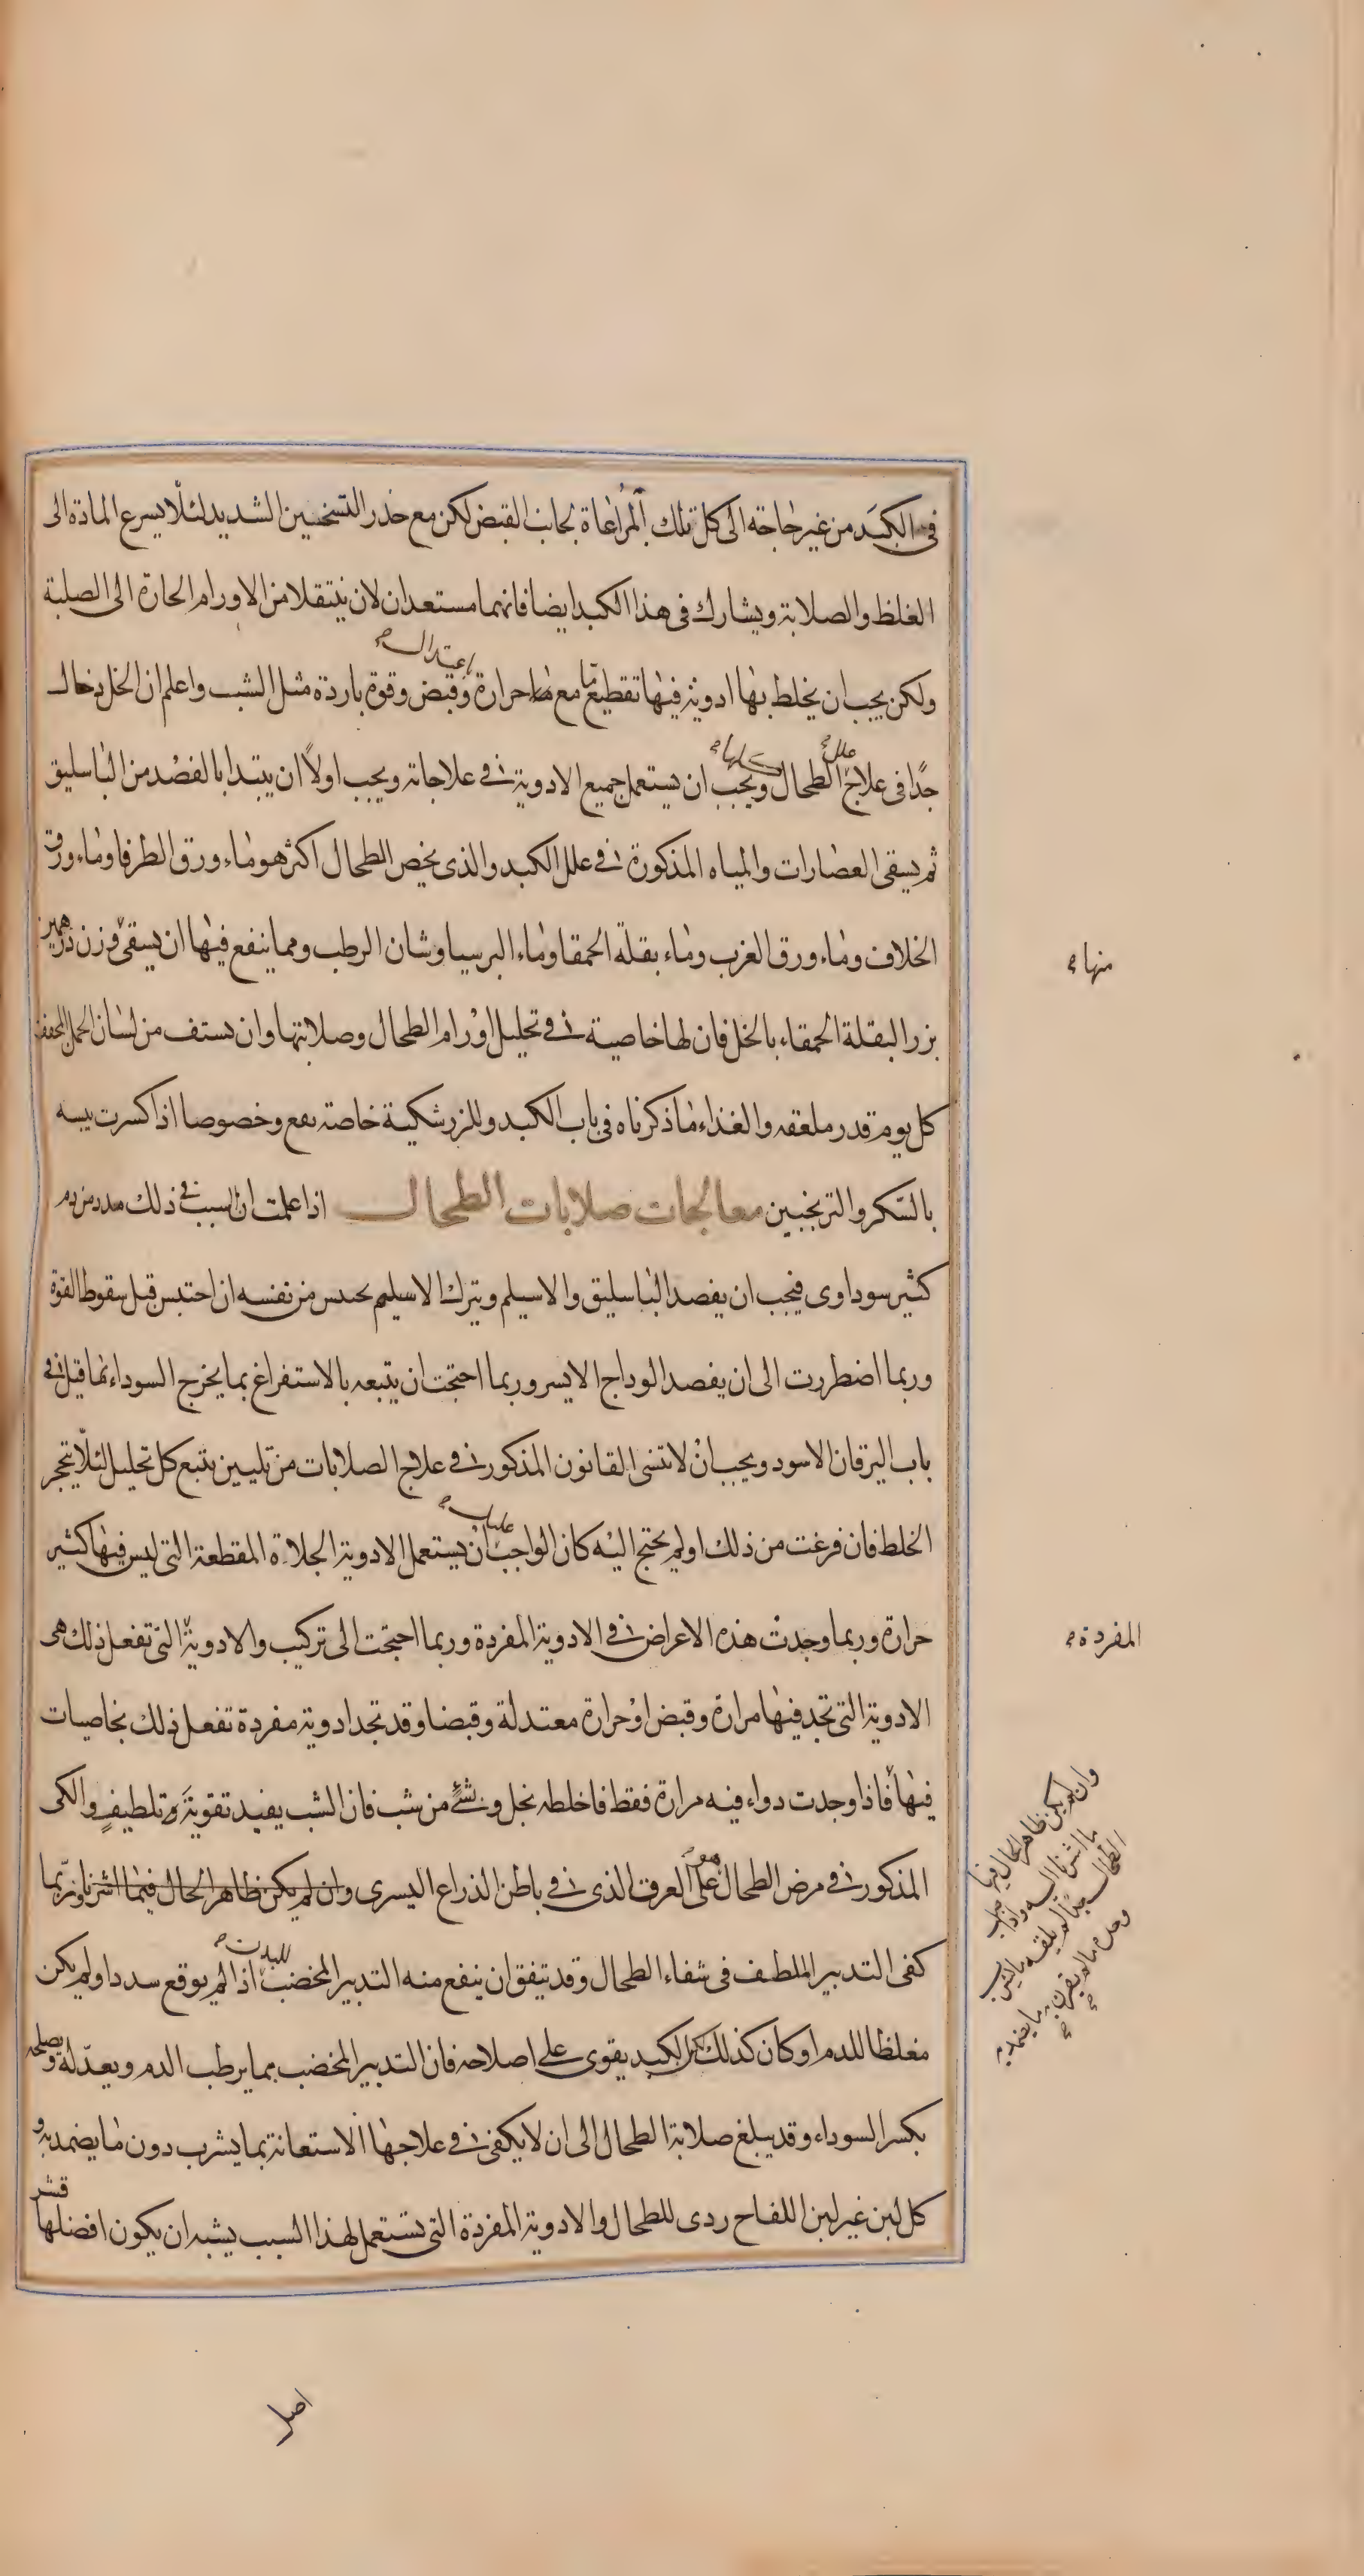 في الكبد من غير حاجة الى كل تلك المراعاة لجانب القبض لكن مع حذر التسخين الشديد لئلا يسرع المادة الى
الغلظ والصلابة ويشارك في هذا الكبد ايضا فانهما مستعدان لان ينتقلا من الاورام الحارة الى الصلبة
اعتدال
ولكن يجب ان يخلط بها ادوية فيها تقطيع ما مع حرارة وقبض وقوة باردة مثل الشب واعلم ان الخل دخال
علل
جدا في علاج الطحال ويجب ان يستعمل جميع الادوية في علاجاته ويجب اولا ان يبتدا بالفصد من الباسليق
ثم يسقى العصارات والمياه المذكورة في علل الكبد والذي يخص الطحال اكثر هو ماء ورق الطرفا وماء ورق
الخلاف وماء ورق الغرب وماء بقلة الحمقا وماء البرسياوشان الرطب ومما ينفع فيها ان يسقى وزن درهمين
منها
بزر البقلة الحمقاء بالخل فان لها خاصية في تحليل اورام الطحال وصلابتها وان يستف من لسان الحمل المجفف
كل يوم قدر ملعقه والغذاء ما ذكرناه في باب الكبد وللزرشكية خاصة نفع وخصوصا اذا كسرت يبسه
بالسكر والترنجبين معالجات صلابات الطحال اذا علمت ان السبب في ذلك مدد من دم
كثير سوداوى فيجب ان يفصد الباسليق والاسيلم ويترك الاسيلم يحتبس من نفسه ان احتبس قبل سقوط القوة
وربما اضطررت الى ان يفصد الوداج الايسر وربما احتجت ان يتبعه بالاستفراغ بما يخرج السوداء مما قيل في
باب اليرقان الاسود ويجب ان لا تنسى القانون المذكور في علاج الصلابات من تليين يتبع كل تحليل لئلا يتحجر
عليك
الخلط فان فرغت من ذلك او لم يحتج اليه كان الواجب ان يستعمل الادوية الجلاءة المقطعة التي ليس فيها كثير
حرارة وربما وجدت هذه الاعراض في الادوية المفردة وربما احتجت الى تركيب والادوية التي تفعل ذلك هي
المفردة
الادوية التي تجد فيها مرارة وقبضا او حرارة معتدلة وقبضا وقد تجد ادوية مفردة تفعل ذلك بخاصيات
فيها فاذا وجدت دواء فيه مرارة فقط فاخلطه بخل وشئ من شب فان الشب يفيد تقوية وتلطيف والكى
المذكور في مرض الطحال على العرق الذي في باطن الذراع اليسرى وان لم يكن ظاهر الحال فيما اشرنا وربما
وان لم يكن ظاهر الحال فيما
ما اشرنا اليه واذا
للبدن
كفى التدبير الملطف في شفاء الطحال وقد يتفق ان ينفع منه التدبير المخصب اذا لم يوقع سددا ولم يكن
مغلظا للدم او كان كذلك لكن الكبد يقوى على اصلاحه فان التدبير المخصب مما يرطب الدم ويعدله ويصلحه
بكسر السوداء وقد يبلغ صلابة الطحال الى ان لا يكفي في علاجها الاستعانة بما يشرب دون ما يضمد به و
كل لبن غير لبن اللقاح ردى للطحال والادوية المفردة التي تستعمل لهذا السبب يشبه ان يكون افضلها قشر
اصل